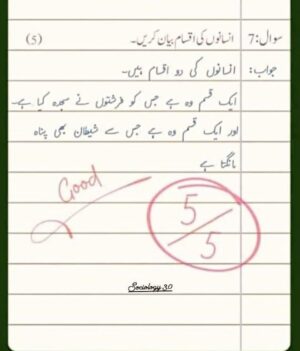 سوال:7 انسانوں کی اقسام بیان کریں۔ (5)
جواب: انسانوں کی دو اقسام ہیں۔
ایک قسم وہ ہے جس کو فرشتوں نے سجدہ کیا ہے۔
اور ایک قسم وہ ہے جس سے شیطان بھی پناہ
مانگتا ہے
Good
5/5
Sociology 3.0